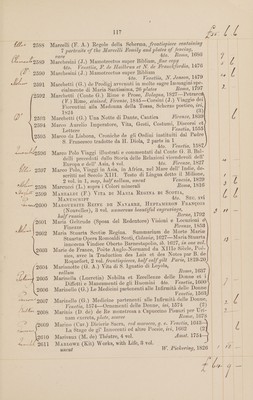 117
2588 Marcelli (F. A.) Regole della Scherma, frontispiece containing
7 portraits of the Marcelli Family and plates of fencing,
4to. Roma, 1686
2589 Marchesini (J.) Mamotrectus super Bibliam, fine copy
4to. Venetiis, F. de Hailbrun et N. de Franckfordia, 1479
2590 Marchesini (J.) Mamotrectus super Bibliam
4to. Venetiis, N. Jenson, 1479
2591 Marchetti (G.) de Prodigj avvenuti in molte sagre Immagini specialmente
di Maria Santissima, 26 plates Roma, 1797
2592 Marchetti (Conte G.) Rime e Prose, Bologna, 1827—Petrarca
(F.) Rime, stained, Firenze, 1845—Contini (J.) Viaggio dei
Fiorentini alla Madonna della Tossa, Scherzo poetico, ivi,
1824 (3)
2593 Marchetti (G.) Una Notte di Dante, Cantica Firenze, 1839
2594 Marco Aurelio Imperatore, Vita, Gesti, Costumi, Discorsi et
Lettere Venetia, 1553
2595 Marco da Lisbona, Croniche de gli Ordini instituiti dal Padre
S. Francesco tradotte da H. Diola, 2 parts in 1
4to. Venetia, 1582
2596 Marco Polo Viaggi illustrati e commentati dal Conte G. B. Baldelli
preceduti dalla Storia delle Relazioni vicendevoli dell'
Europa e dell' Asia, 4 vol. 4to. Firenze, 1827
2597 Marco Polo, Viagi in Asia, in Africa, nel Mare dell' Indie, descritti
nel Secolo XIII. Testo di Lingua detto il Milione,
2 vol. in 1, map, half vellum, uncut Venezia, 1829
2598 Marcucci (L.) sopra i Colori minerali Roma, 1816
2600 Marguerite Royne de Navarre, Heptameron François
(Nouvelles), 3 vol. numerous beautiful engravings,
half russia Berne, 1792
2601 Maria Geltrude (Sposa del Redentore) Visioni e Locuzioni di,
Firenze Firenze, 1863
2602 Maria Stuarta Scotiæ Regina. Summarium de Morte Mariæ
Stuartæ Opera Romualdi Scoti, Coloniæ, 1627—Maria Stuarta
innocens Vindice Oberto Barnestapolio, ib. 1627, in one vol.
2603 Marie de France, Poëte Anglo-Normand du XIIIe Siècle, Poësies,
avec la Traduction des Lais et des Notes par B. de
Roquefort, 2 vol. frontispieces, half calf gilt Paris, 1819-20
2605 Marinella (Lucretia) Nobilità et Eccellenze delle Donne et i
Diffetti e Mancamenti de gli Huomini 4to. Venetia, 1600
2606 Marinello (G.) Le Medicine partenenti alle Infermità delle Donne
Venetia, 1563
2607 Marinello (G.) Medicine partenenti alle Infermità delle Donne,
Venetia, 1574—Ornamenti delle Donne, ivi, 1574 (2)
2609 Marino (Cav.) Dicerie Sacre, red morocco, g. e. Venetia, 1618—
La Stage de gl' Innocenti ed altre Poesie, ivi, 1662 (2)
2610 Marivaux (M. de) Théatre, 4 vol. Amst. 1754
2611 Marlowe (Kit) Works, with Life, 3 vol.
uncut W. Pickering, 1826